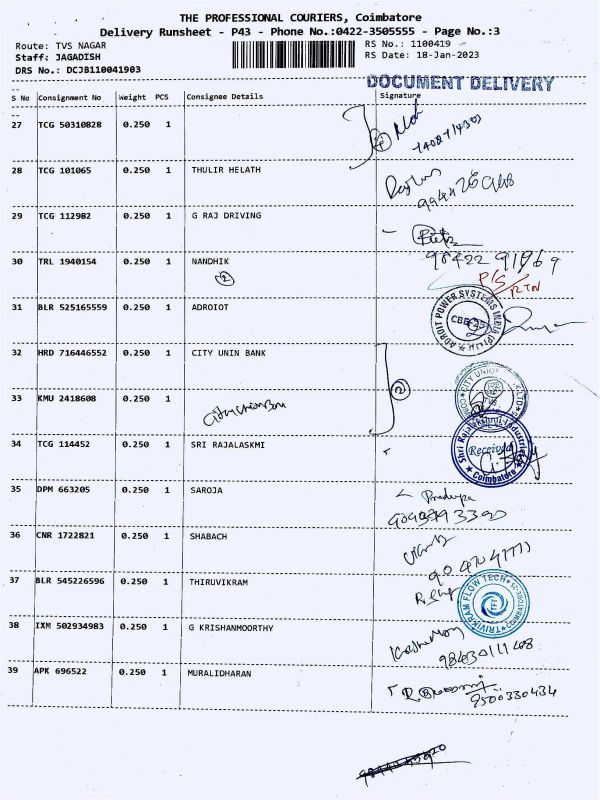 THE PROFESSIONAL COURIERS, Coimbatore
Delivery Runsheet - P43 - Phone No.:0422-3505555 - Page No.:3
Route: TVS NAGAR
RS No.: 1100419
Staff: JAGADISH
RS Date: 18-Jan-2023
DRS No.: DCJB110041903
DOCUMENT DELIVERY
S No Consignment No Weight PCS Consignee Details Signature
27 TCG 50310828 0.250 1
28 TCG 101065 0.250 1 THULIR HELATH
29 TCG 112982 0.250 1 G RAJ DRIVING
30 TRL 1940154 0.250 1 NANDHIK
2
P/S
RTN
31 BLR 525165559 0.250 1 ADROIOT
ADROIT POWER SYSTEMS INDIA (P) Ltd
CBE-25
32 HRD 716446552 0.250 1 CITY UNIN BANK
2
CITY UNION
33 KMU 2418608 0.250 1
34 TCG 114452 0.250 1 SRI RAJALASKMI
Shri Rajalakshmi Industries
Received
Coimbatore
35 DPM 663205 0.250 1 SAROJA
36 CNR 1722821 0.250 1 SHABACH
37 BLR 545226596 0.250 1 THIRUVIKRAM
TRIVIKRAM FLOW TECH
TFT
38 IXM 502934983 0.250 1 G KRISHANMOORTHY
39 APK 696522 0.250 1 MURALIDHARAN
9500330434